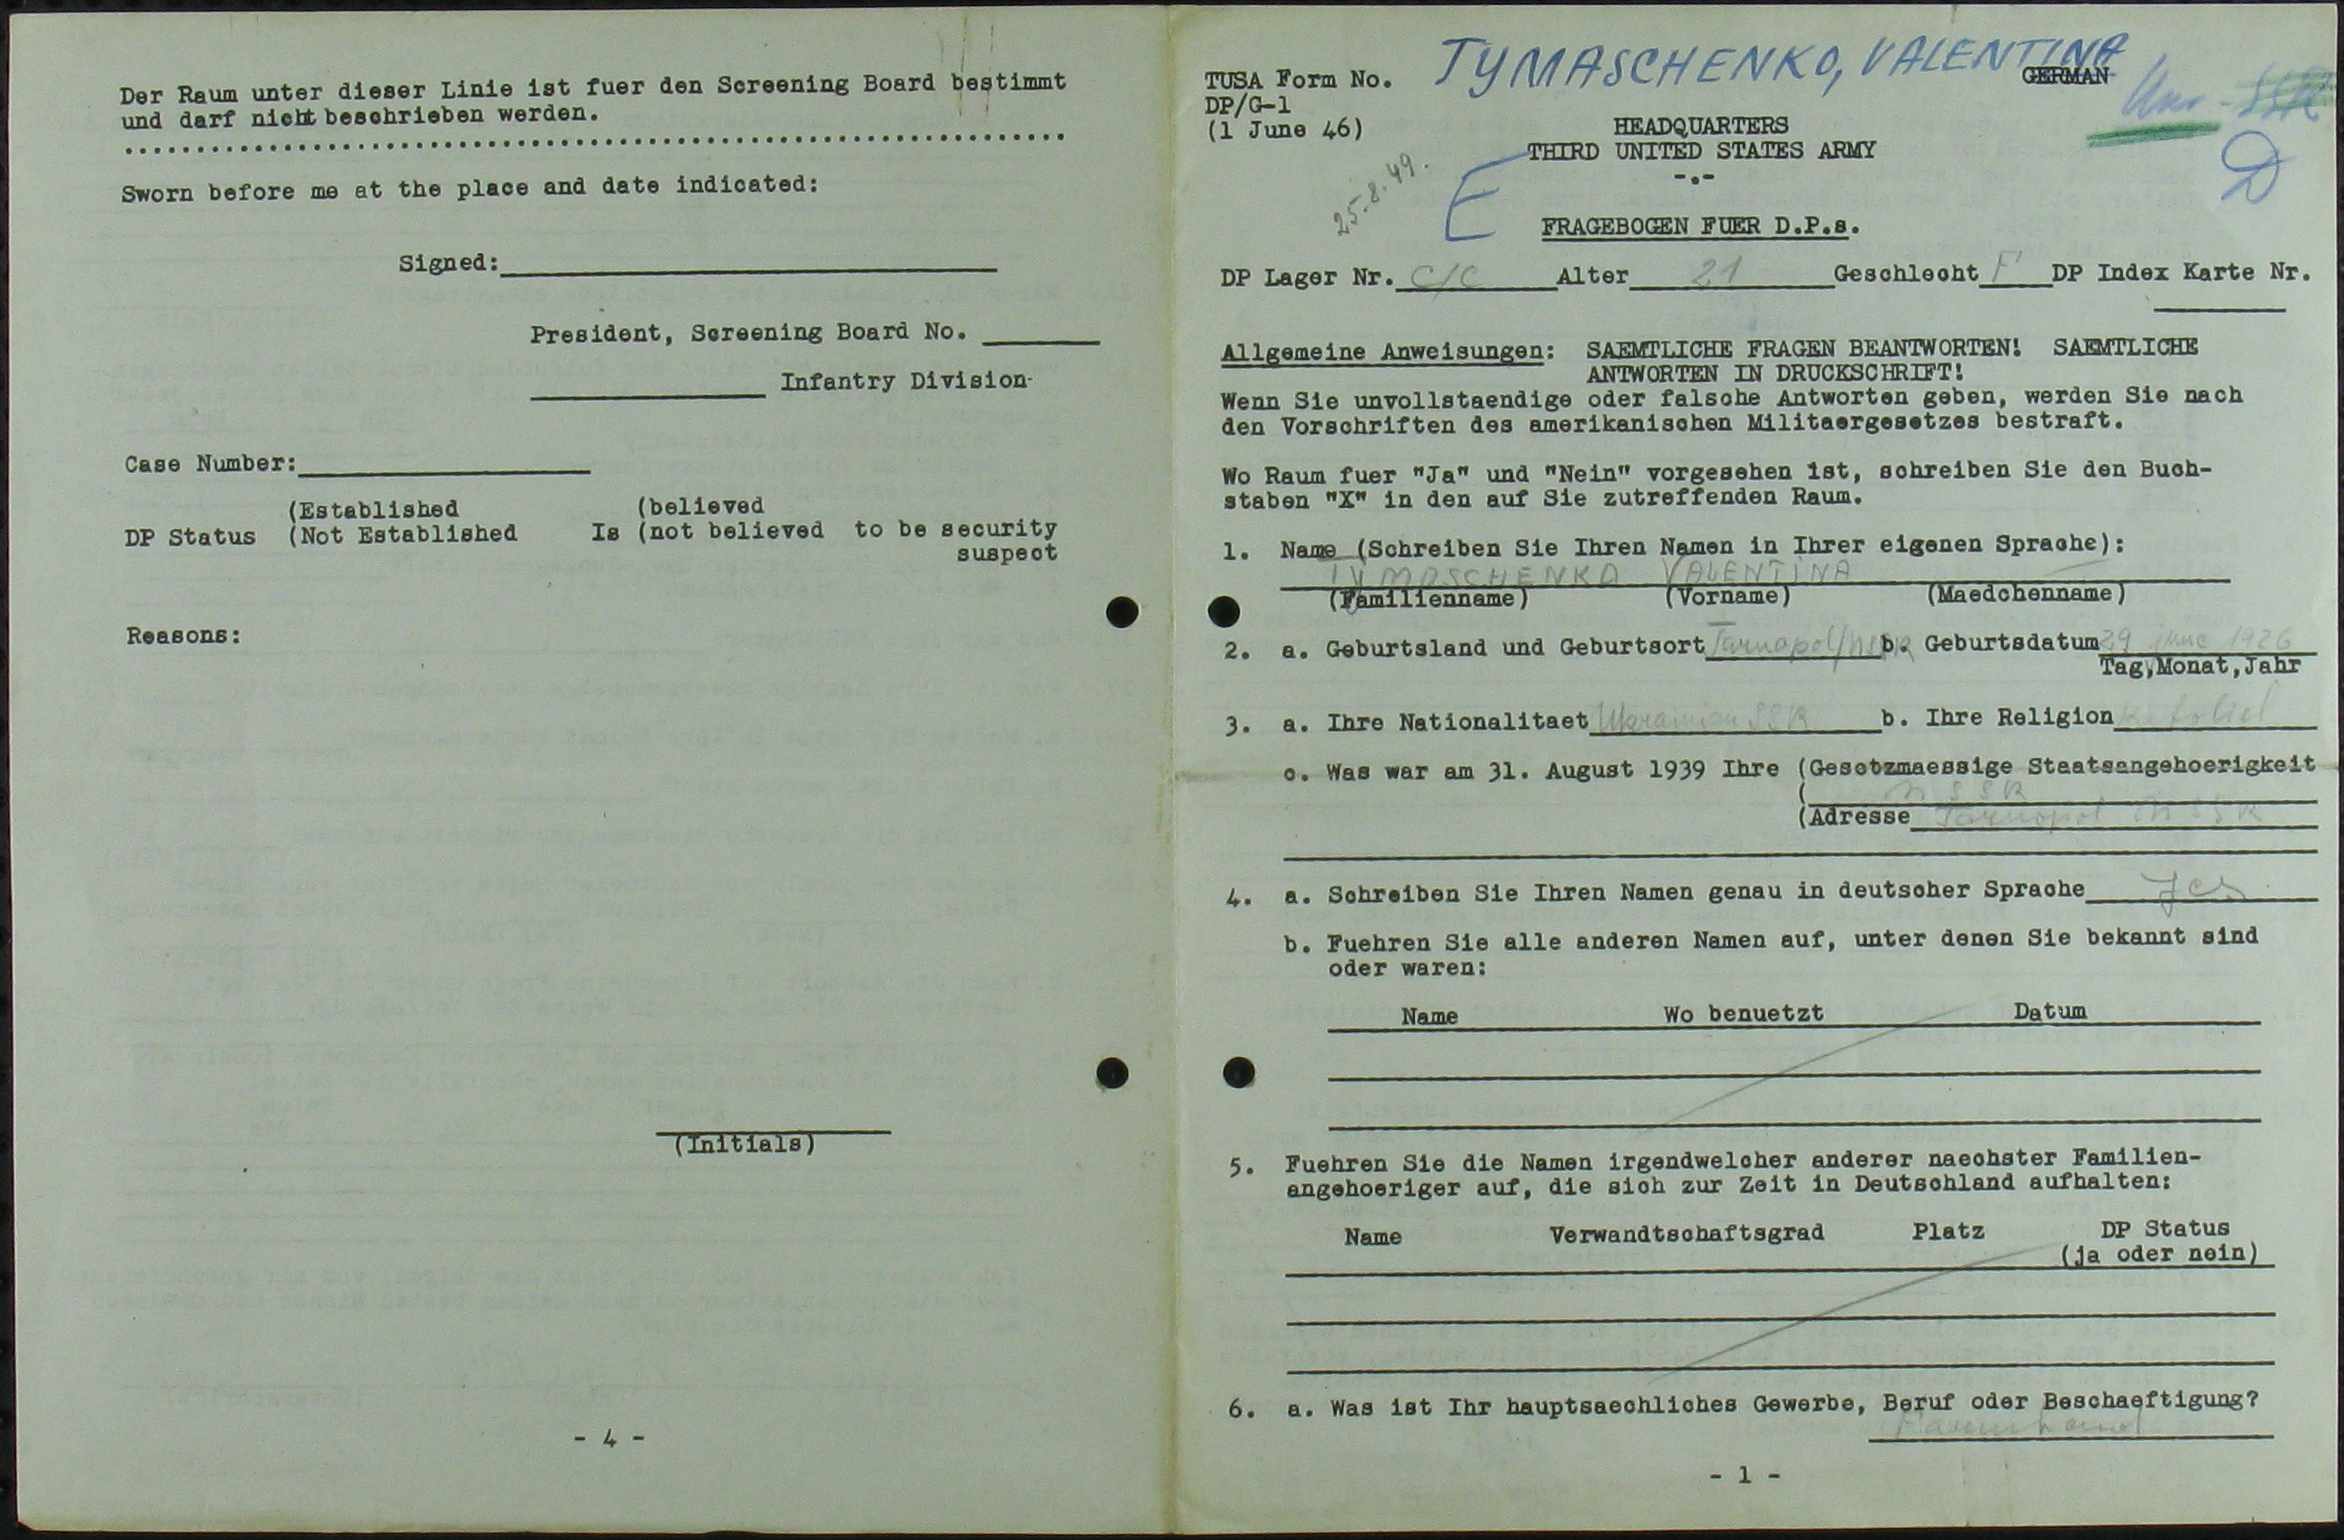 Der Raum unter dieser Linie ist fuer den Screening Board bestimmt
und darf nicht beschrieben werden.
Sworn before me at the place and date indicated:
Signed:
President, Screening Board No.
Infantry Division
Case Number:
(Established (believed
DP Status (Not Established Is (not believed to be security
suspect
Reasons:
(Initials)
- 4 -
TYMASCHENKO, VALENTINA
TUSA Form No. GERMAN
DP/G-1
(1 June 46)
HEADQUARTERS
THIRD UNITED STATES ARMY
-.-
25.8.49.
E
D
FRAGEBOGEN FUER D.P.s.
DP Lager Nr. C/C Alter 21 Geschlecht F DP Index Karte Nr.
Allgemeine Anweisungen: SAEMTLICHE FRAGEN BEANTWORTEN! SAEMTLICHE
ANTWORTEN IN DRUCKSCHRIFT!
Wenn Sie unvollstaendige oder falsche Antworten geben, werden Sie nach
den Vorschriften des amerikanischen Militaergesetzes bestraft.
Wo Raum fuer "Ja" und "Nein" vorgesehen ist, schreiben Sie den Buch-
staben "X" in den auf Sie zutreffenden Raum.
1. Name (Schreiben Sie Ihren Namen in Ihrer eigenen Sprache):
TYMASCHENKO VALENTINA
(Familienname) (Vorname) (Maedchenname)
2. a. Geburtsland und Geburtsort Tarnapol/ b. Geburtsdatum 29 June 1926
Tag,Monat,Jahr
3. a. Ihre Nationalitaet Ukrainian SSR b. Ihre Religion
c. Was war am 31. August 1939 Ihre (Gesetzmaessige Staatsangehoerigkeit
(
(Adresse Tarnopol
4. a. Schreiben Sie Ihren Namen genau in deutscher Sprache Yes
b. Fuehren Sie alle anderen Namen auf, unter denen Sie bekannt sind
oder waren:
Name Wo benuetzt Datum
5. Fuehren Sie die Namen irgendwelcher anderer naechster Familien-
angehoeriger auf, die sich zur Zeit in Deutschland aufhalten:
Name Verwandtschaftsgrad Platz DP Status
(ja oder nein)
6. a. Was ist Ihr hauptsaechliches Gewerbe, Beruf oder Beschaeftigung?
- 1 -